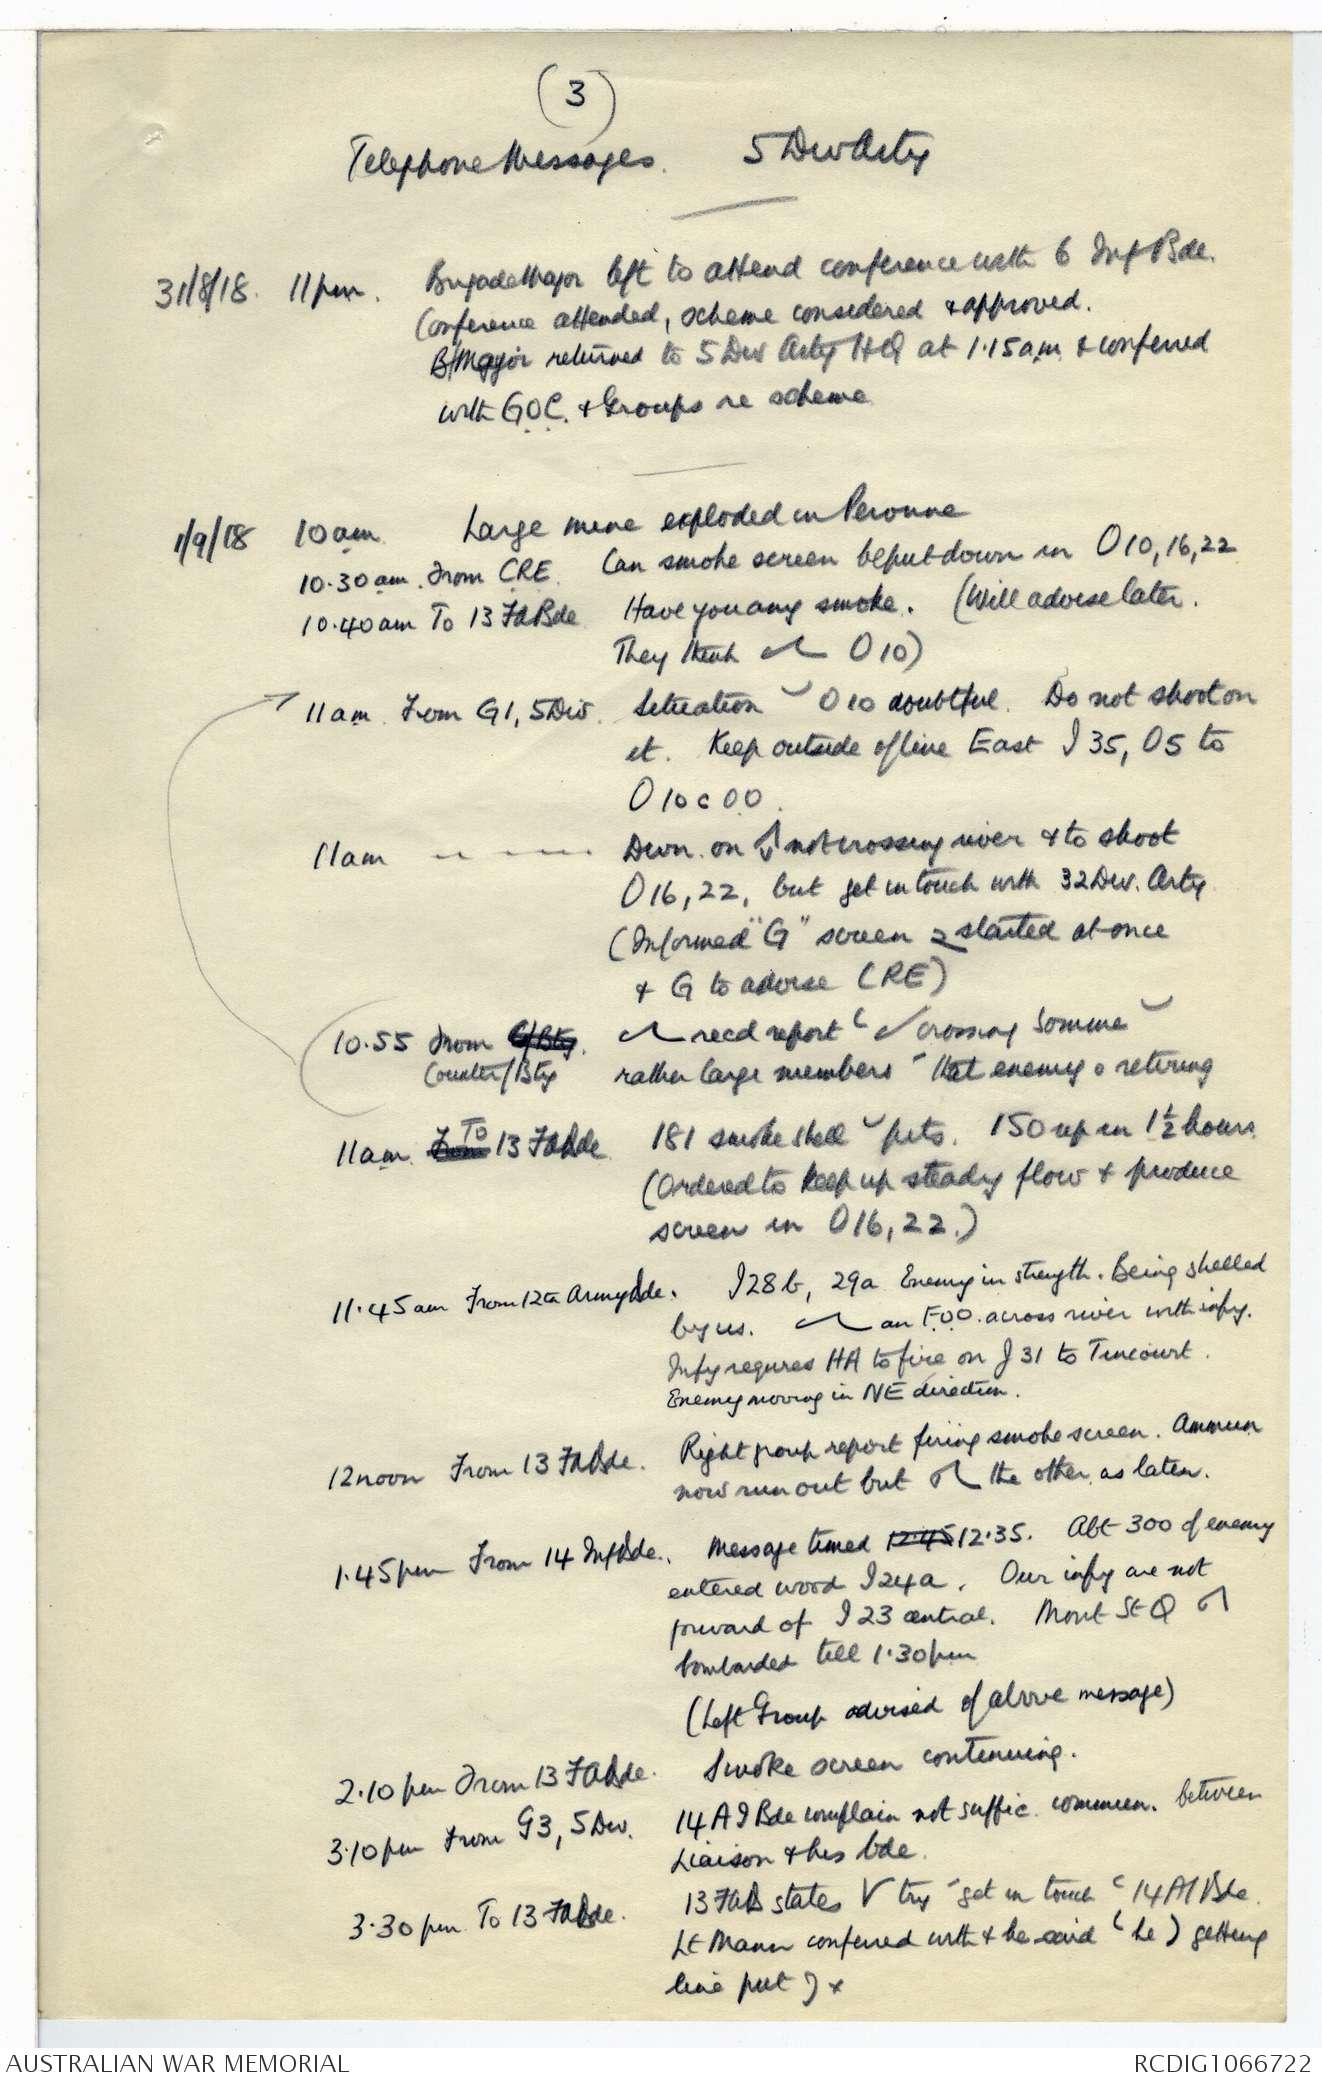 (3)
Telephone Messages. 5 Div Arty
31/8/18. 11pm. Brigade Major left to attend conference with 6 Inf Bde.
Conference attended, scheme considered & approved.
B/Major returned to 5 Div Arty HQ at 1.15am & conferred
with G.O.C. & Groups re scheme
1/9/18 10am Large mine exploded in Peronne
10.30am. From CRE. Can smoke screen be put down in O10, 16, 22
10.40am To 13 FABde Have you any smoke. (Will advise later.
They think O10)
11am. From G1, 5 Div. Situation O10 doubtful. Do not shoot on
it. Keep outside of line East I 35, O5 to
O10c00.
11am Down on not crossing river & to shoot
O16, 22, but get in touch with 32 Div. Arty
(Informed "G" screen started at once
& G to advise CRE)
10.55 From C/Bty. recd report crossing Somme
Counter/Bty rather large members that enemy retiring
11am. From To 13 FABde 181 smoke shell pits. 150 up in 1½ hours
(Ordered to keep up steady flow & produce
screen in O16, 22.)
11.45am From 12th Army Bde. I28b, 29a Enemy in strength. Being shelled
by us. an F.O.O. across river with infy.
Infy requres HA to fire on J31 to Tincourt.
Enemy moving in NE direction.
12 noon From 13 FABde. Right group report firing smoke screen. Ammun
now run out but the other as laten.
1.45pm From 14 Inf Bde. Message timed 12.45 12.35. Abt 300 of enemy
entered wood I24a. Our infy are not
forward of I 23 central. Mont St Q
bombarded till 1.30pm
(Left Group advised of above message)
2.10pm From 13 FABde. Smoke screen continuing.
3.10pm From G3, 5 Div. 14 A I Bde complain not suffic. commun. between
Liaison & his bde.
3.30pm To 13 FABde. 13 FAB states try get in touch 14 AI Bde.
Lt Mann conferred with & he said he getting
line put &
AUSTRALIAN WAR MEMORIAL RCDIG1066722